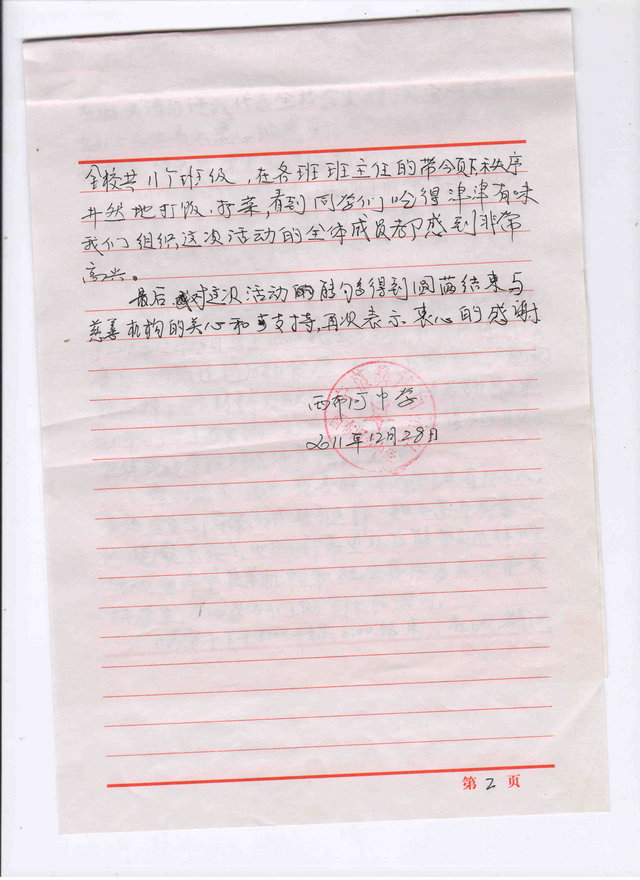 全校共11个班级,在各班班主任的带领下秩序
井然地打饭、打菜,看到同学们吃得津津有味
我们组织这次活动的全体成员都感到非常
高兴。
最后对这次活动的能够得到圆满结束与
慈善机构的关心和支持,再次表示衷心的感谢
西布河中学
2011年12月28日
第2页